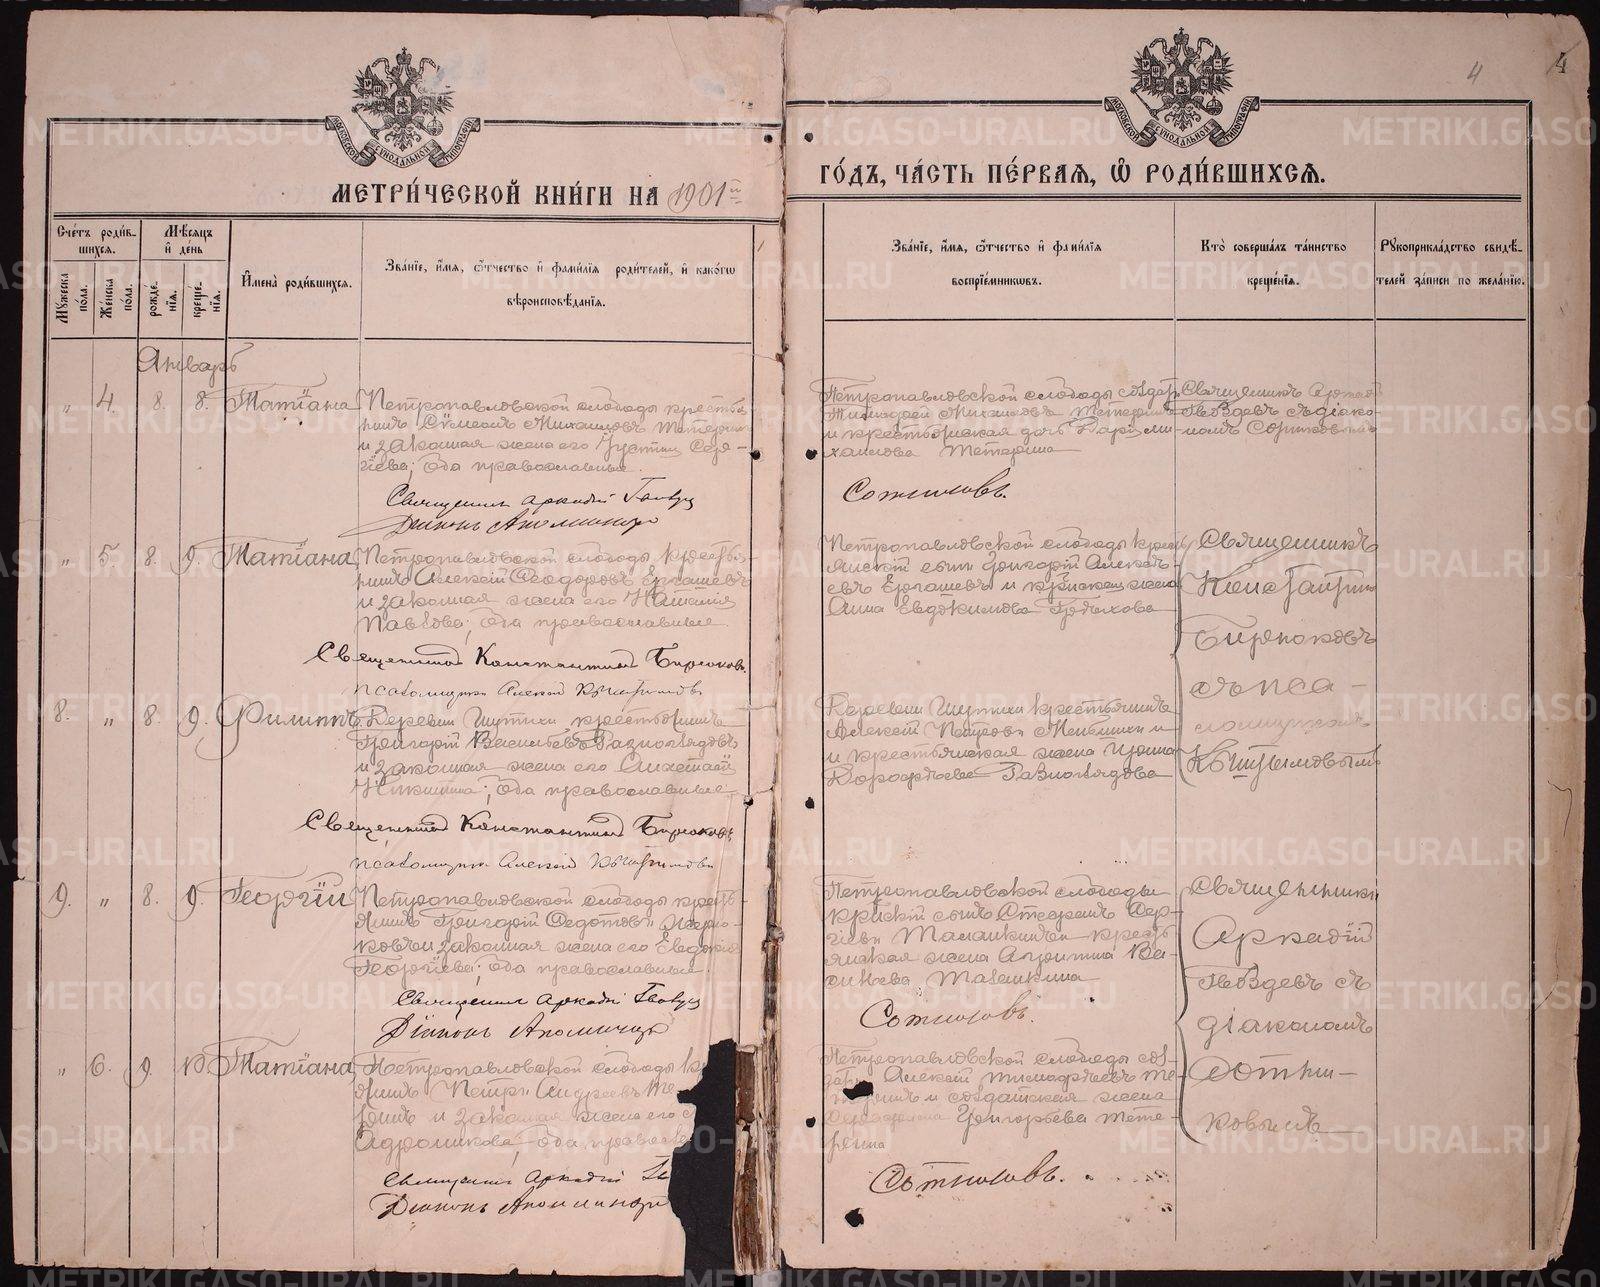 4
МЕТРИ́ЧЕСКОЙ КНИ́ГИ НА 1901й
ГО́ДЪ, ЧА́СТЬ ПЕ́РВАѦ, Ѽ РОДИ́ВШИХСѦ.
Сче́тъ роди́в-
шихсѧ.
Мѣ́сѧцъ
и҆ де́нь
Мꙋ́жеска
по́ла.
Же́нска
по́ла.
рожде́-
нїѧ.
креще́-
нїѧ.
И҆мена̀ роди́вшихсѧ.
Зва́нїе, и҆́мѧ, ѻ҆́тчество и҆ фами́лїѧ роди́телей, и҆ како́гѡ
вѣроисповѣ́данїѧ.
Зва́нїе, и҆́мѧ, ѻ҆́тчество и҆ фами́лїѧ
воспрїе́мникѡвъ.
Кто̀ соверша́лъ та́инство
креще́нїѧ.
Рꙋкоприкла́дство свидѣ́-
телей за́писи по жела́нїю.
Январь
" 4. 8. 8. Татiана
Петропавловской слободы крестья
нинъ Сѵмеонъ Михаиловъ Тетеринъ
и законная жена его Iустина Сер-
гiева; оба православные.
Священник Аркадий Гвоздев
Дiаконъ
Петропавловской слободы солдат
Тимофей Михаиловъ Тетеринъ
и крестьянская дочь Дарiя Ми-
хаилова Тетерина
Сотниковъ.
Священникъ Аркадiй
Гвоздевъ съ дiако-
номъ Сотниковымъ
" 5. 8. 9. Татiана
Петропавловской слободы крестья
нинъ Алексiй Ѳеодоровъ Ергашевъ
и законная жена его Наталiя
Павлова; оба православные.
Священникъ Константинъ Бирюковъ.
псаломщикъ Алексiй Кыштымовъ
Петропавловской слободы крест
янскiй сынъ Григорiй Алексѣ-
евъ Ергашевъ и кр жена
Анна Евдокимова
Священникъ
Константинъ
Бирюковъ
съ пса-
ломщикомъ
Кыштымовымъ
8. " 8. 9. Филиппъ
Деревни Шутихи крестьянинъ
Григорiй Васильевъ Разноглядовъ
и законная жена его Анастасiя
Никитина; оба православные
Священникъ Константинъ Бирюковъ,
псаломщикъ Алексiй Кыштымовъ
Деревни Шутихи крестьянинъ
Алексiй Петровъ и
и крестьянская жена Ирина
Дороѳеева Разноглядова
9. " 8. 9. Георгiй
Петропавловской слободы кресть-
янинъ Григорiй Ѳедотовъ
ковъ и законная жена его Евдокiя
Георгiева; оба православные.
Священник Аркадий Гвоздев
Дiаконъ
Петропавловской слободы
крскiй сынъ Стефанъ Сер-
гiевъ и крест
янская жена Агриппина Ва-
сильева
Сотниковъ.
Священникъ
Аркадiй
Гвоздевъ съ
дiакономъ
Сотни-
ковымъ
" 6. 9. 10 Татiана
Петропавловской слободы кр
янинъ Петръ Андреевъ Те-
ринъ и законная жена его
Андроникова; оба правосл
Священник Аркадий Гв
Дiаконъ
Петропавловской слободы сол-
датъ Алексiй Тимоѳеевъ Те-
теринъ и солдатская жена
Григорьева Тете-
рина
Сотниковъ.